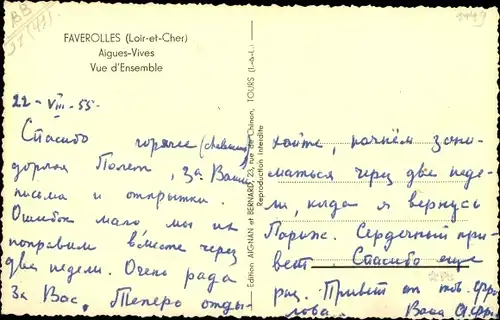 FAVEROLLES (Loir-et-Cher)
Aigues-Vives
Vue d'Ensemble
22-VIII-55.
Спасибо горячее
дорогая Полет, за Ваши
письма и открытки.
Ошибок мало, мы их
поправим вместе через
две недели. Очень рада
за Вас. Теперь отды-
Edition AIGNAN et BERNARD, 23, rue de Chinon, TOURS (I.-&-L.)
Reproduction Interdite
хайте, начнём зани-
маться через две неде-
ли, когда я вернусь
Париж. Сердечный при-
вет. Спасибо еще
раз. Привет от
Ваша